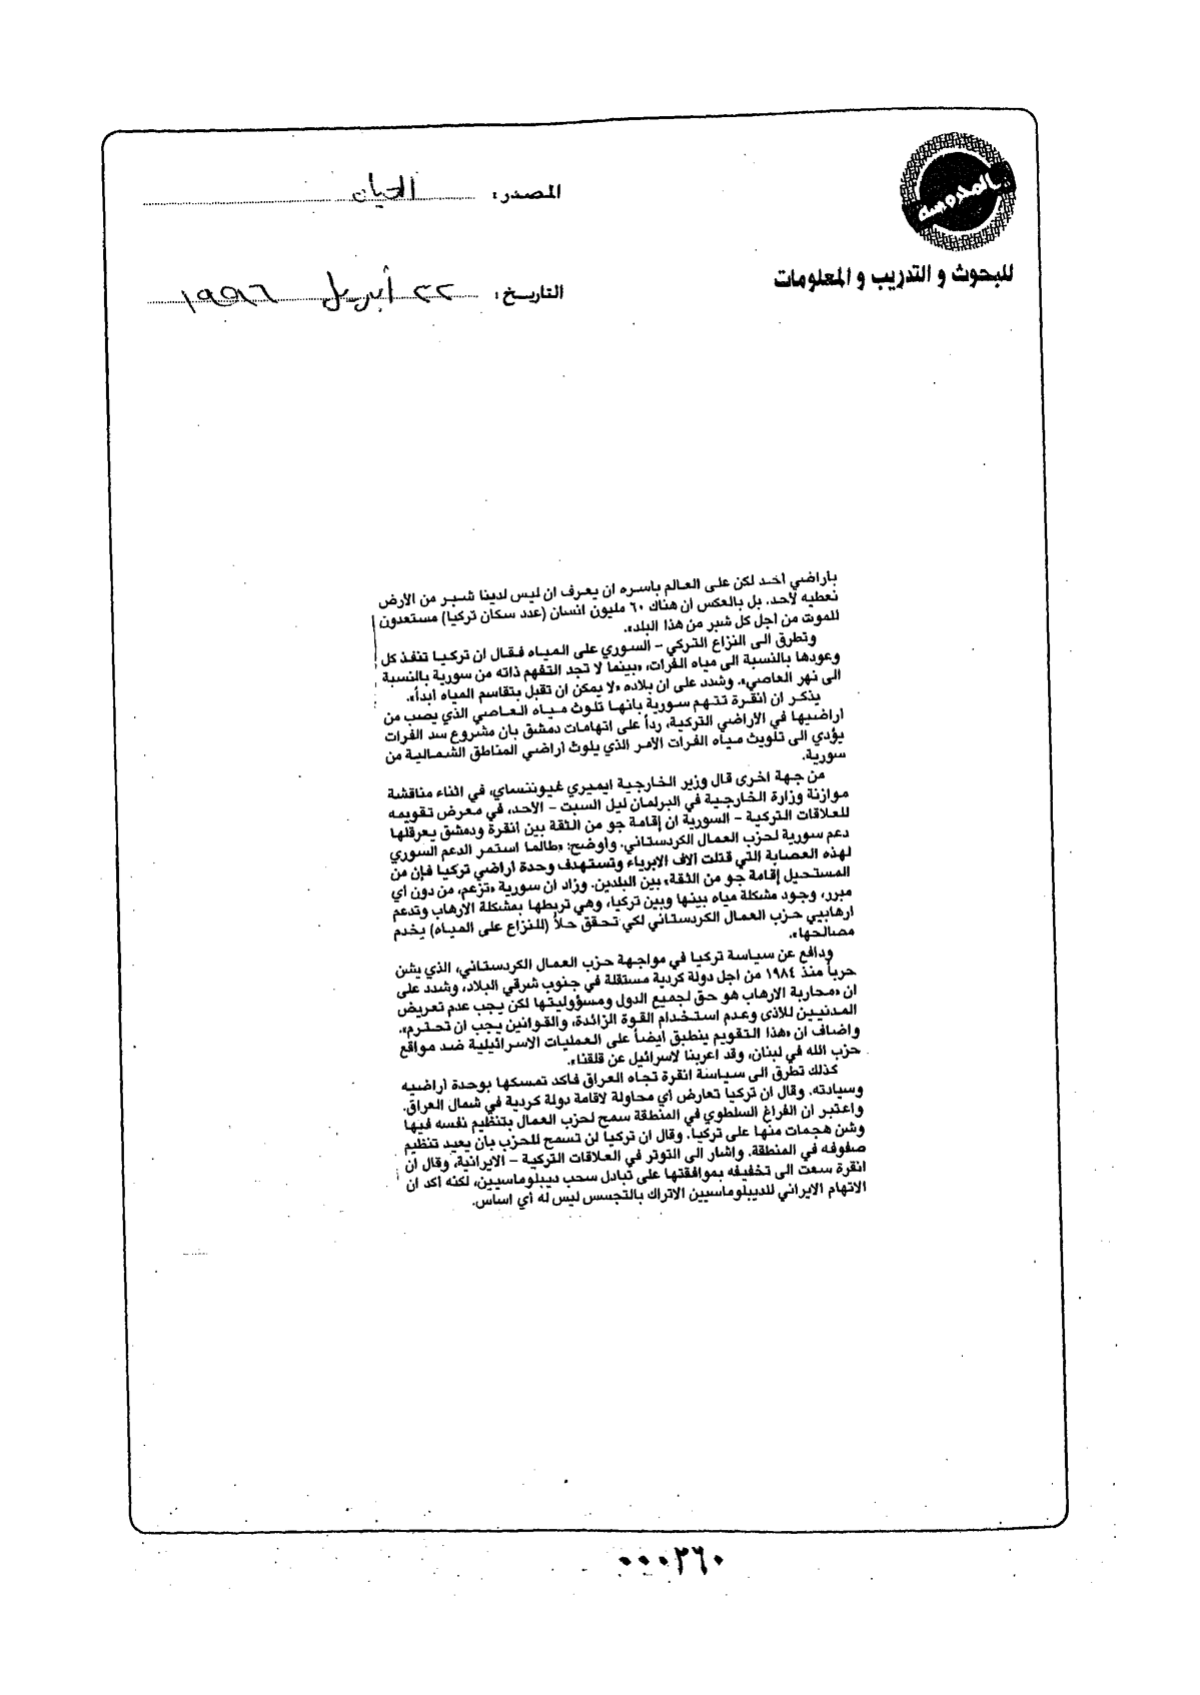 المدروسة
للبحوث و التدريب و المعلومات
المصدر: الحياة
التاريخ: ٢٢ أبريل ١٩٩٦
باراضي أحد لكن على العالم باسره ان يعرف ان ليس لدينا شبر من الأرض
نعطيه لأحد. بل بالعكس ان هناك ٦٠ مليون انسان (عدد سكان تركيا) مستعدون
للموت من اجل كل شبر من هذا البلد».
وتطرق الى النزاع التركي - السوري على المياه فقال ان تركيا تنفذ كل
وعودها بالنسبة الى مياه الفرات، «بينما لا تجد التفهم ذاته من سورية بالنسبة
الى نهر العاصي». وشدد على ان بلاده «لا يمكن ان تقبل بتقاسم المياه ابداً».
يذكر ان انقرة تتهم سورية بانها تلوث مياه العاصي الذي يصب من
اراضيها في الأراضي التركية، رداً على اتهامات دمشق بان مشروع سد الفرات
يؤدي الى تلويث مياه الفرات الأمر الذي يلوث أراضي المناطق الشمالية من
سورية.
من جهة اخرى قال وزير الخارجية ايميري غيوننساي، في اثناء مناقشة
موازنة وزارة الخارجية في البرلمان ليل السبت - الأحد، في معرض تقويمه
للعلاقات التركية - السورية ان إقامة جو من الثقة بين انقرة ودمشق يعرقلها
دعم سورية لحزب العمال الكردستاني. واوضح: «طالما استمر الدعم السوري
لهذه العصابة التي قتلت آلاف الابرياء وتستهدف وحدة أراضي تركيا فإن من
المستحيل إقامة جو من الثقة» بين البلدين. وزاد ان سورية «تزعم، من دون أي
مبرر، وجود مشكلة مياه بينها وبين تركيا، وهي تربطها بمشكلة الارهاب وتدعم
ارهابيي حزب العمال الكردستاني لكي تحقق حلاً (للنزاع على المياه) يخدم
مصالحها».
ودافع عن سياسة تركيا في مواجهة حزب العمال الكردستاني، الذي يشن
حرباً منذ ١٩٨٤ من اجل دولة كردية مستقلة في جنوب شرقي البلاد، وشدد على
ان «محاربة الارهاب هو حق لجميع الدول ومسؤوليتها لكن يجب عدم تعريض
المدنيين للأذى وعدم استخدام القوة الزائدة، والقوانين يجب ان تحترم».
واضاف ان «هذا التقويم ينطبق ايضاً على العمليات الاسرائيلية ضد مواقع
حزب الله في لبنان، وقد اعربنا لاسرائيل عن قلقنا».
كذلك تطرق الى سياسة انقرة تجاه العراق فأكد تمسكها بوحدة أراضيه
وسيادته. وقال ان تركيا تعارض أي محاولة لاقامة دولة كردية في شمال العراق.
واعتبر ان الفراغ السلطوي في المنطقة سمح لحزب العمال بتنظيم نفسه فيها
وشن هجمات منها على تركيا. وقال ان تركيا لن تسمح للحزب بان يعيد تنظيم
صفوفه في المنطقة. واشار الى التوتر في العلاقات التركية - الايرانية، وقال ان
انقرة سعت الى تخفيفه بموافقتها على تبادل سحب ديبلوماسيين، لكنه اكد ان
الاتهام الايراني للديبلوماسيين الاتراك بالتجسس ليس له أي اساس.
٠٠٠٢٦٠